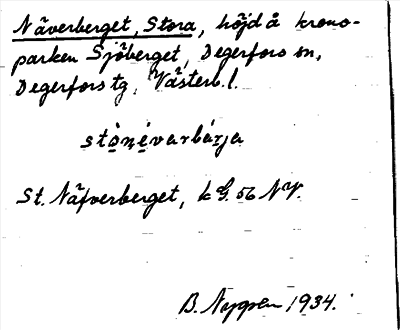 Näverberget, Stora, höjd å krono-
parken Sjöberget, Degerfors sn,
Degerfors tg, Västerb. l.
stònèvarbárja
St. Näfverberget, k G. 56 NV.
B. 1934.